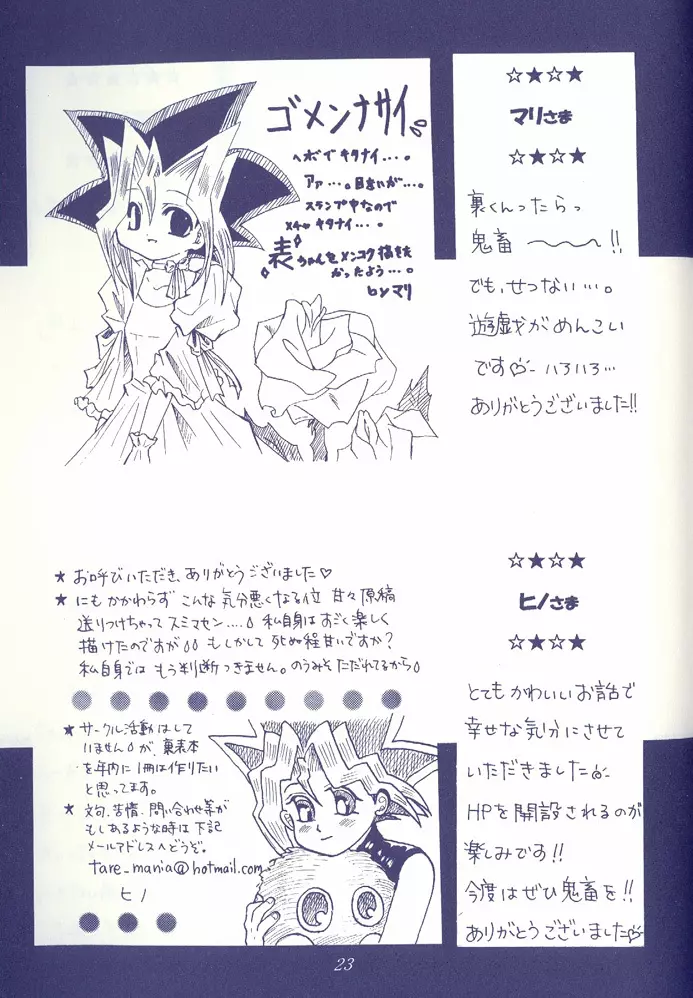 ゴメンナサイ
ヘボでキタナイ…。
アァ…。目まいが…。
スランプ中なので
メチャキタナイ…。
表ちゃんをメンコク描きた
かったよう…。
マリ
☆★☆★
マリさま
☆★☆★
裏くんったらっ
鬼畜〜〜!!
でも、せつない…。
遊戯がめんこい
です♡ ハァハァ…
ありがとうございました!!
★ お呼びいただき、ありがとうございました♡
★ にもかかわらず こんな気分悪くなる位 甘々原稿
送りつけちゃって スミマセン…. 私自身は すごく楽しく
描けたのですが もしかして 死ぬ程甘いですか?
私自身では もう判断つきません。のうみそただれてるから
★ サークル活動はして
いませんが、裏表本
を年内に1冊は作りたい
と思ってます。
★ 文句、苦情、問い合わせ等が
もしあるような時は 下記
メールアドレスへどうぞ。
tare_mania@hotmail.com
ヒノ
☆★☆★
ヒノさま
☆★☆★
とてもかわいいお話で
幸せな気分にさせて
いただきました
HPを開設されるのが
楽しみです!!
今度はぜひ鬼畜を!!
ありがとうございました♡
23